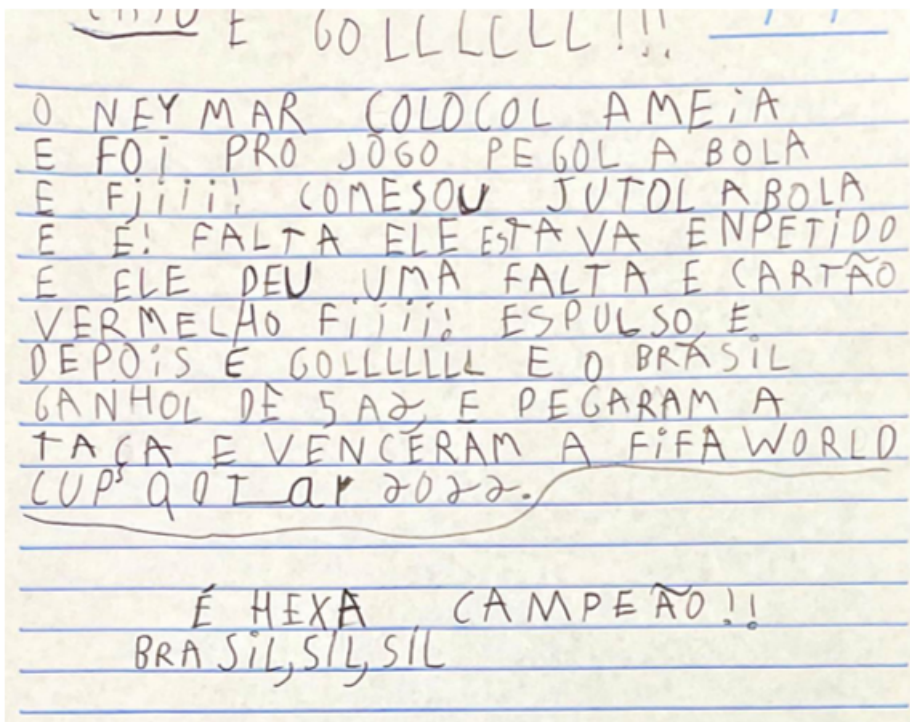 É GOLLLLLLL!!!
O NEYMAR COLOCOL AMEiA
E FOi PRO JOGO PEGOL A BOLA
E Fjiiii! COMESOU JUTOL ABOLA
E É! FALTA ELE ESTAVA ENPETiDO
E ELE DEU UMA FALTA E CARTÃO
VERMELHO Fiiiii! ESPULSO E
DEPOiS É GOLLLLLLL E O BRASiL
GANHOL DE 5 A2, E PEGARAM A
TAÇA E VENCERAM A FiFA WORLD
CUP's QaTar 2022.
É HEXA CAMPEÃO!!
BRASiL,SiL,SiL